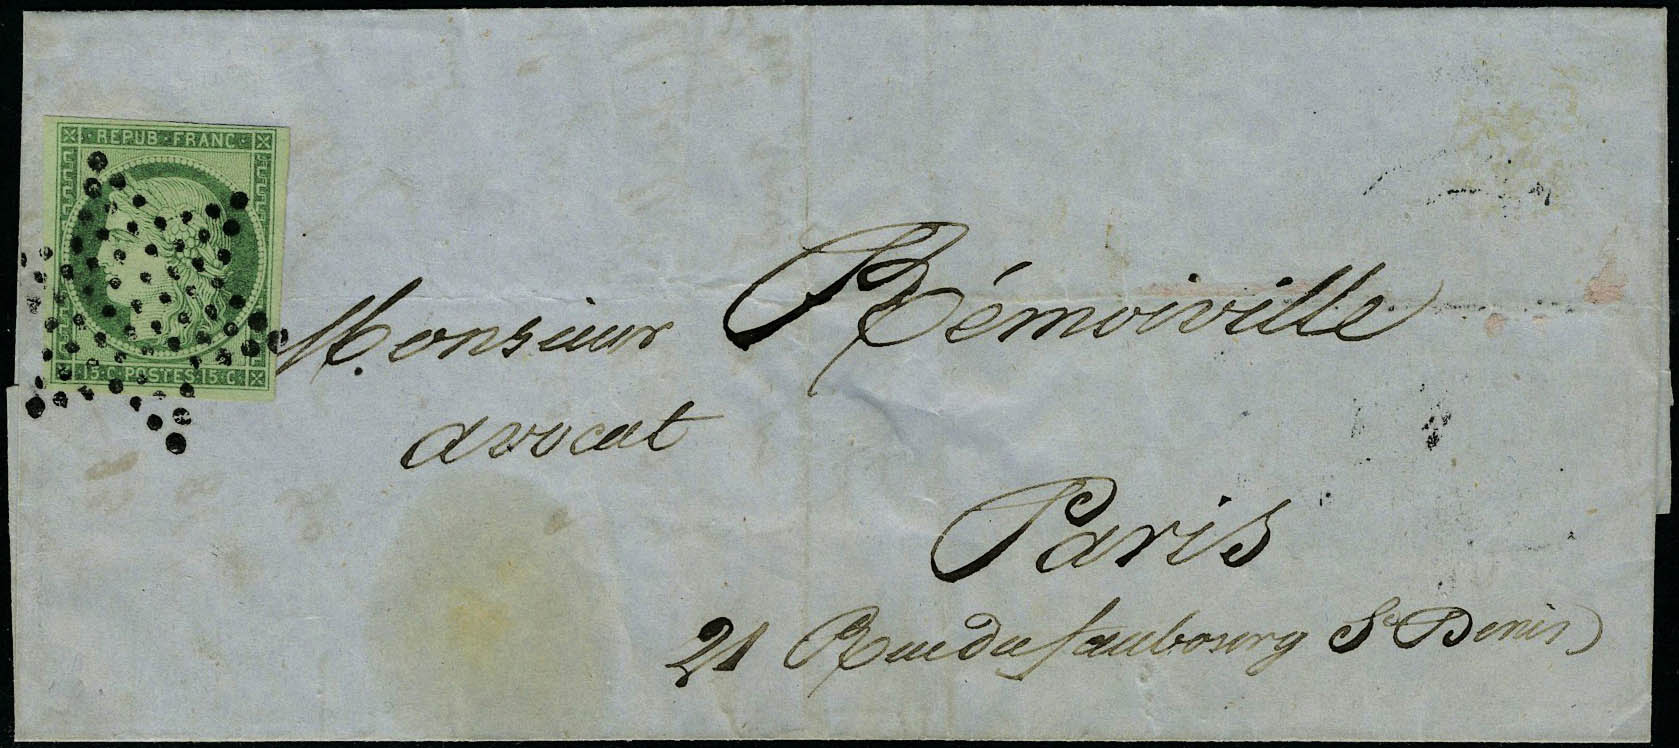 REPUB·FRANC·
15·C·POSTES·15·C
Monsieur Rémoiville
avocat
Paris
21 Rue du faubourg St Denis